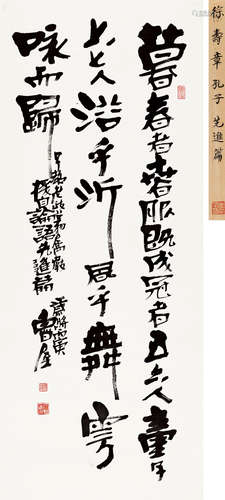 徐壽章 孔子 先進篇
暮春者春服既成冠者五六人童子
六七人浴乎沂風乎舞雩
詠而歸
論語先進篇
丙寅